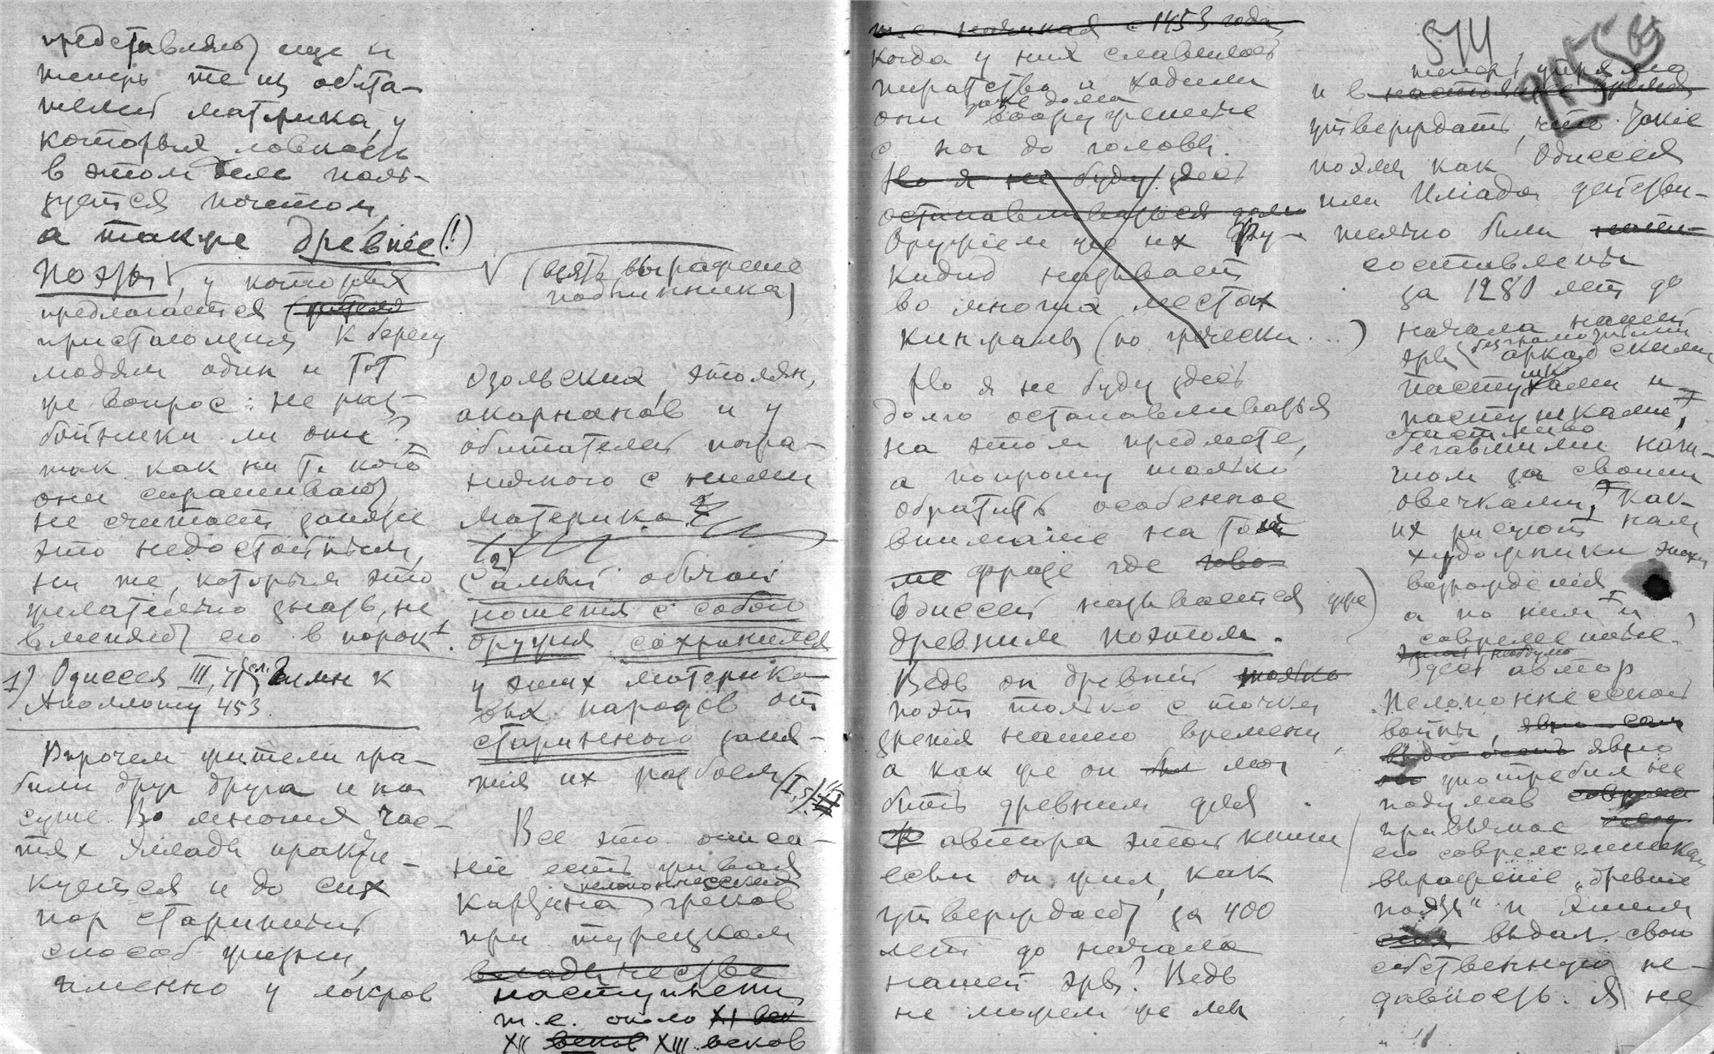 представляют еще и
теперь те из обита-
телей матерika, у
которых ловкость
в этом деле поль-
зуется почетом,
а также древние (!)
поэты, у которых
предлагается
пристающим к берегу
людям один и тот
же вопрос: не раз-
бойники ли они?
так как ни те кого
они спрашивают,
не считают занятие
это недостойным,
ни те, которым это
желательно знать, не
вменяют его в порок 1.
1) Одиссея III, 71, Гимн к
Аполлону 453
Впрочем жители гра-
били друг друга и на
суше. Во многих час-
тях Эллады практи-
куется и до сих
пор старинный
способ жизни,
именно у локров
(взять выражение
подлинника)
Озольских, этолян,
акарнанов и у
обитателей погра-
ничного с ними
материка.
2)
Самый обычай
ношения с собою
оружия сохранился
у этих материко-
вых народов от
старинного заня-
тия их разбоем (I, 5)
Все это описа-
ние есть живая
пелопоннесских
картина греков
при турецком
владычестве
наступлении,
т.е. около XI век
XII веков XIII веков
т.е. начиная с 1453 года
когда у них славилось
пиратство и ходили
даже дома
они вооруженные
с ног до головы.
Но я не буду здесь
останавливаться долго
Оружием же их Фу-
кидид называет
во многих местах
кинжалы (по гречески ...)
Но я не буду здесь
долго останавливаться
на этом предмете,
а попрошу только
обратить особенное
внимание на то
фразе где
Одиссей называется уже
древним поэтом.
Ведь он древний только
поэт только с точки
зрения нашего времени,
а как же он мог
быть древним для
автора этой книги
если он жил, как
утверждают, за 400
лет до начала
нашей эры? Ведь
не можем же мы
514
теперь упрямо
и в настоящее время
утверждать, что такие
поэмы как Одиссея
или Илиада действи-
тельно были
составлены
за 1280 лет до
начала нашей
безграмотными
эры аркадскими
пастухами и
пастушками,
бегавшими наги-
шом за своими
овечками, как
их рисуют нам
художники эпохи
возрождения
а по ним и
современные.
Здесь автор
Пелопоннесской
войны, явно сам
явно
употребил не
подумав
привычное
его современникам
выражение „древние
поэты“ и этим
выдал свою
собственную не-
давность. Я не